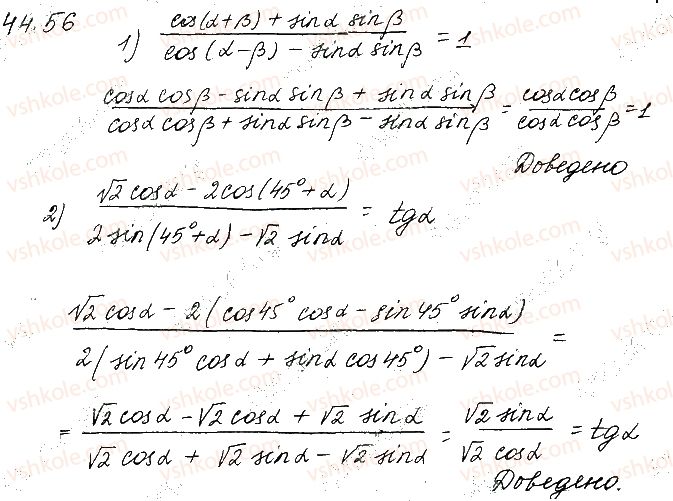 44.56
1) (cos(α+β) + sinα sinβ)/(cos(α-β) - sinα sinβ) = 1
(cosα cosβ - sinα sinβ + sinα sinβ)/(cosα cosβ + sinα sinβ - sinα sinβ) = (cosα cosβ)/(cosα cosβ) = 1
Доведено
2) (√2 cosα - 2cos(45°+α))/(2 sin(45°+α) - √2 sinα) = tgα
(√2 cosα - 2(cos45° cosα - sin45° sinα))/(2(sin45° cosα + sinα cos45°) - √2 sinα) =
= (√2 cosα - √2 cosα + √2 sinα)/(√2 cosα + √2 sinα - √2 sinα) = (√2 sinα)/(√2 cosα) = tgα
Доведено.